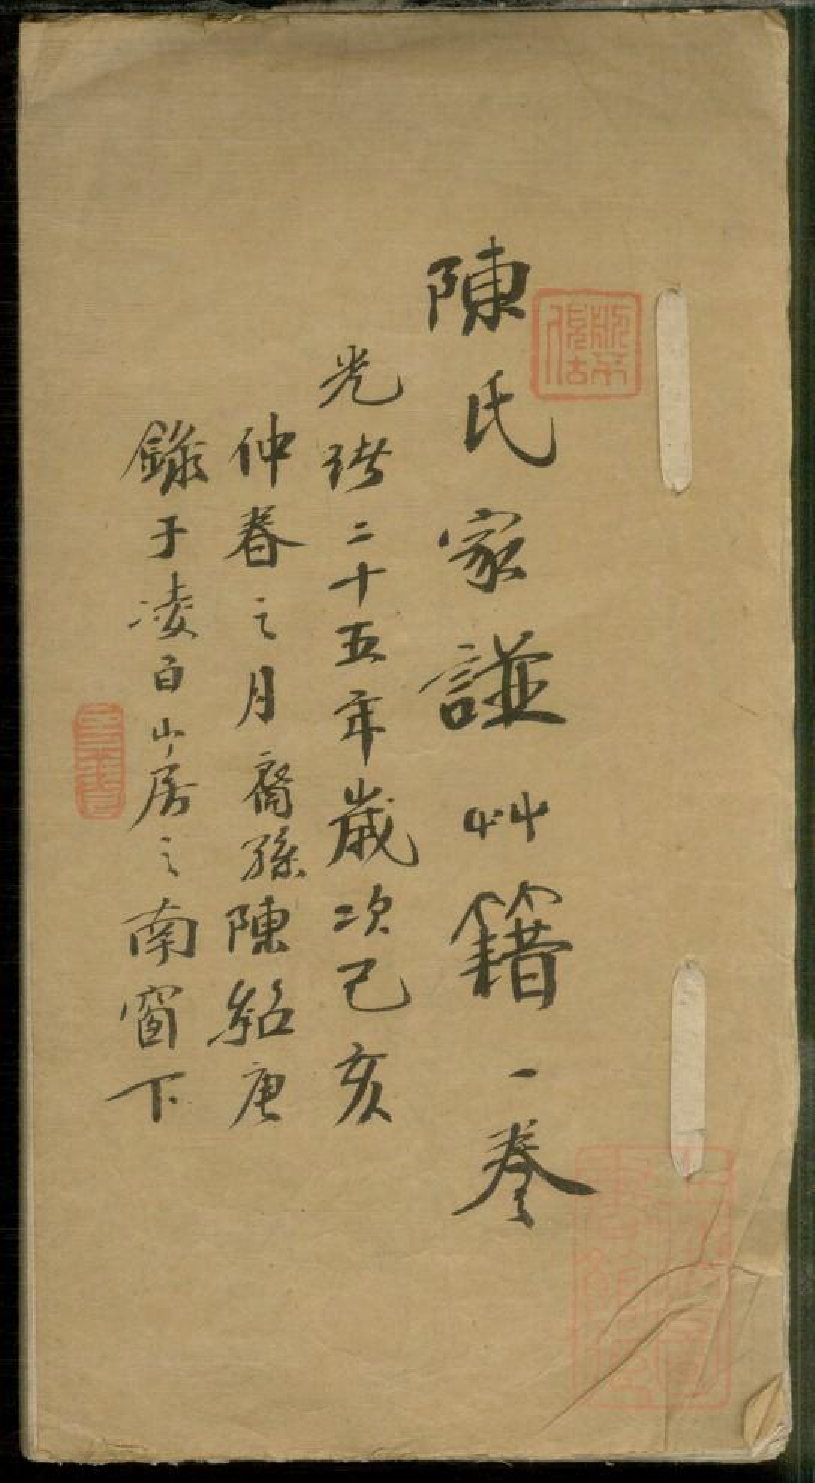 陳氏家譜艸籍一卷
光緒二十五年歲次己亥
仲春之月裔孫陳紹唐
錄于凌百山房之南窗下